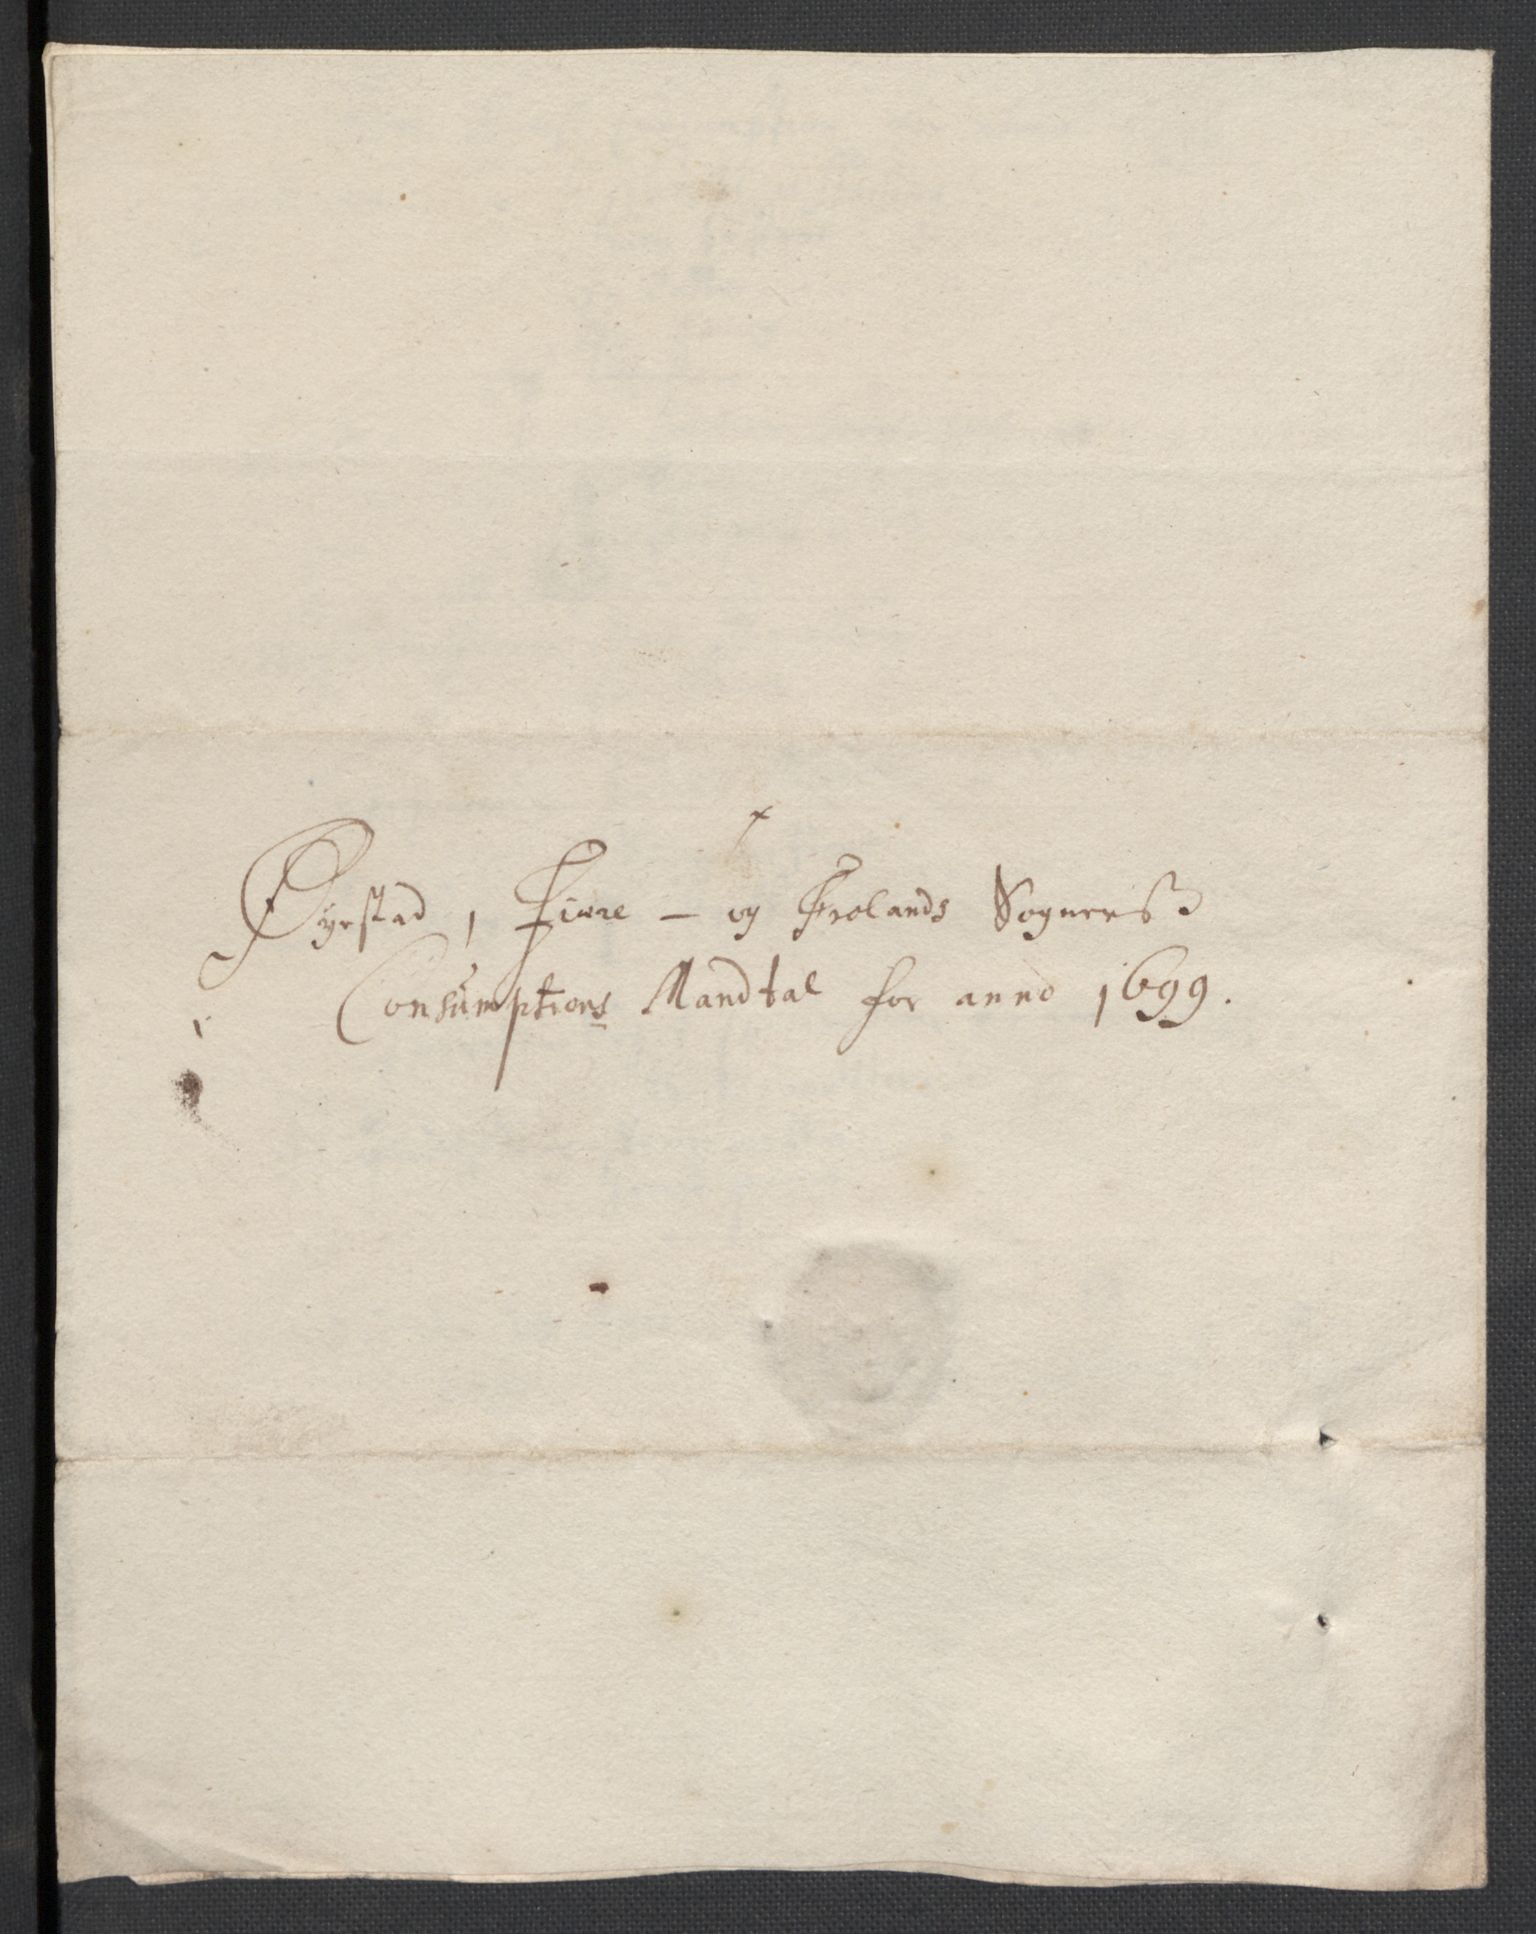 Øyestad, Fiære - og Frolands Sognerß
Consumptions Mandtal for anno 1699.